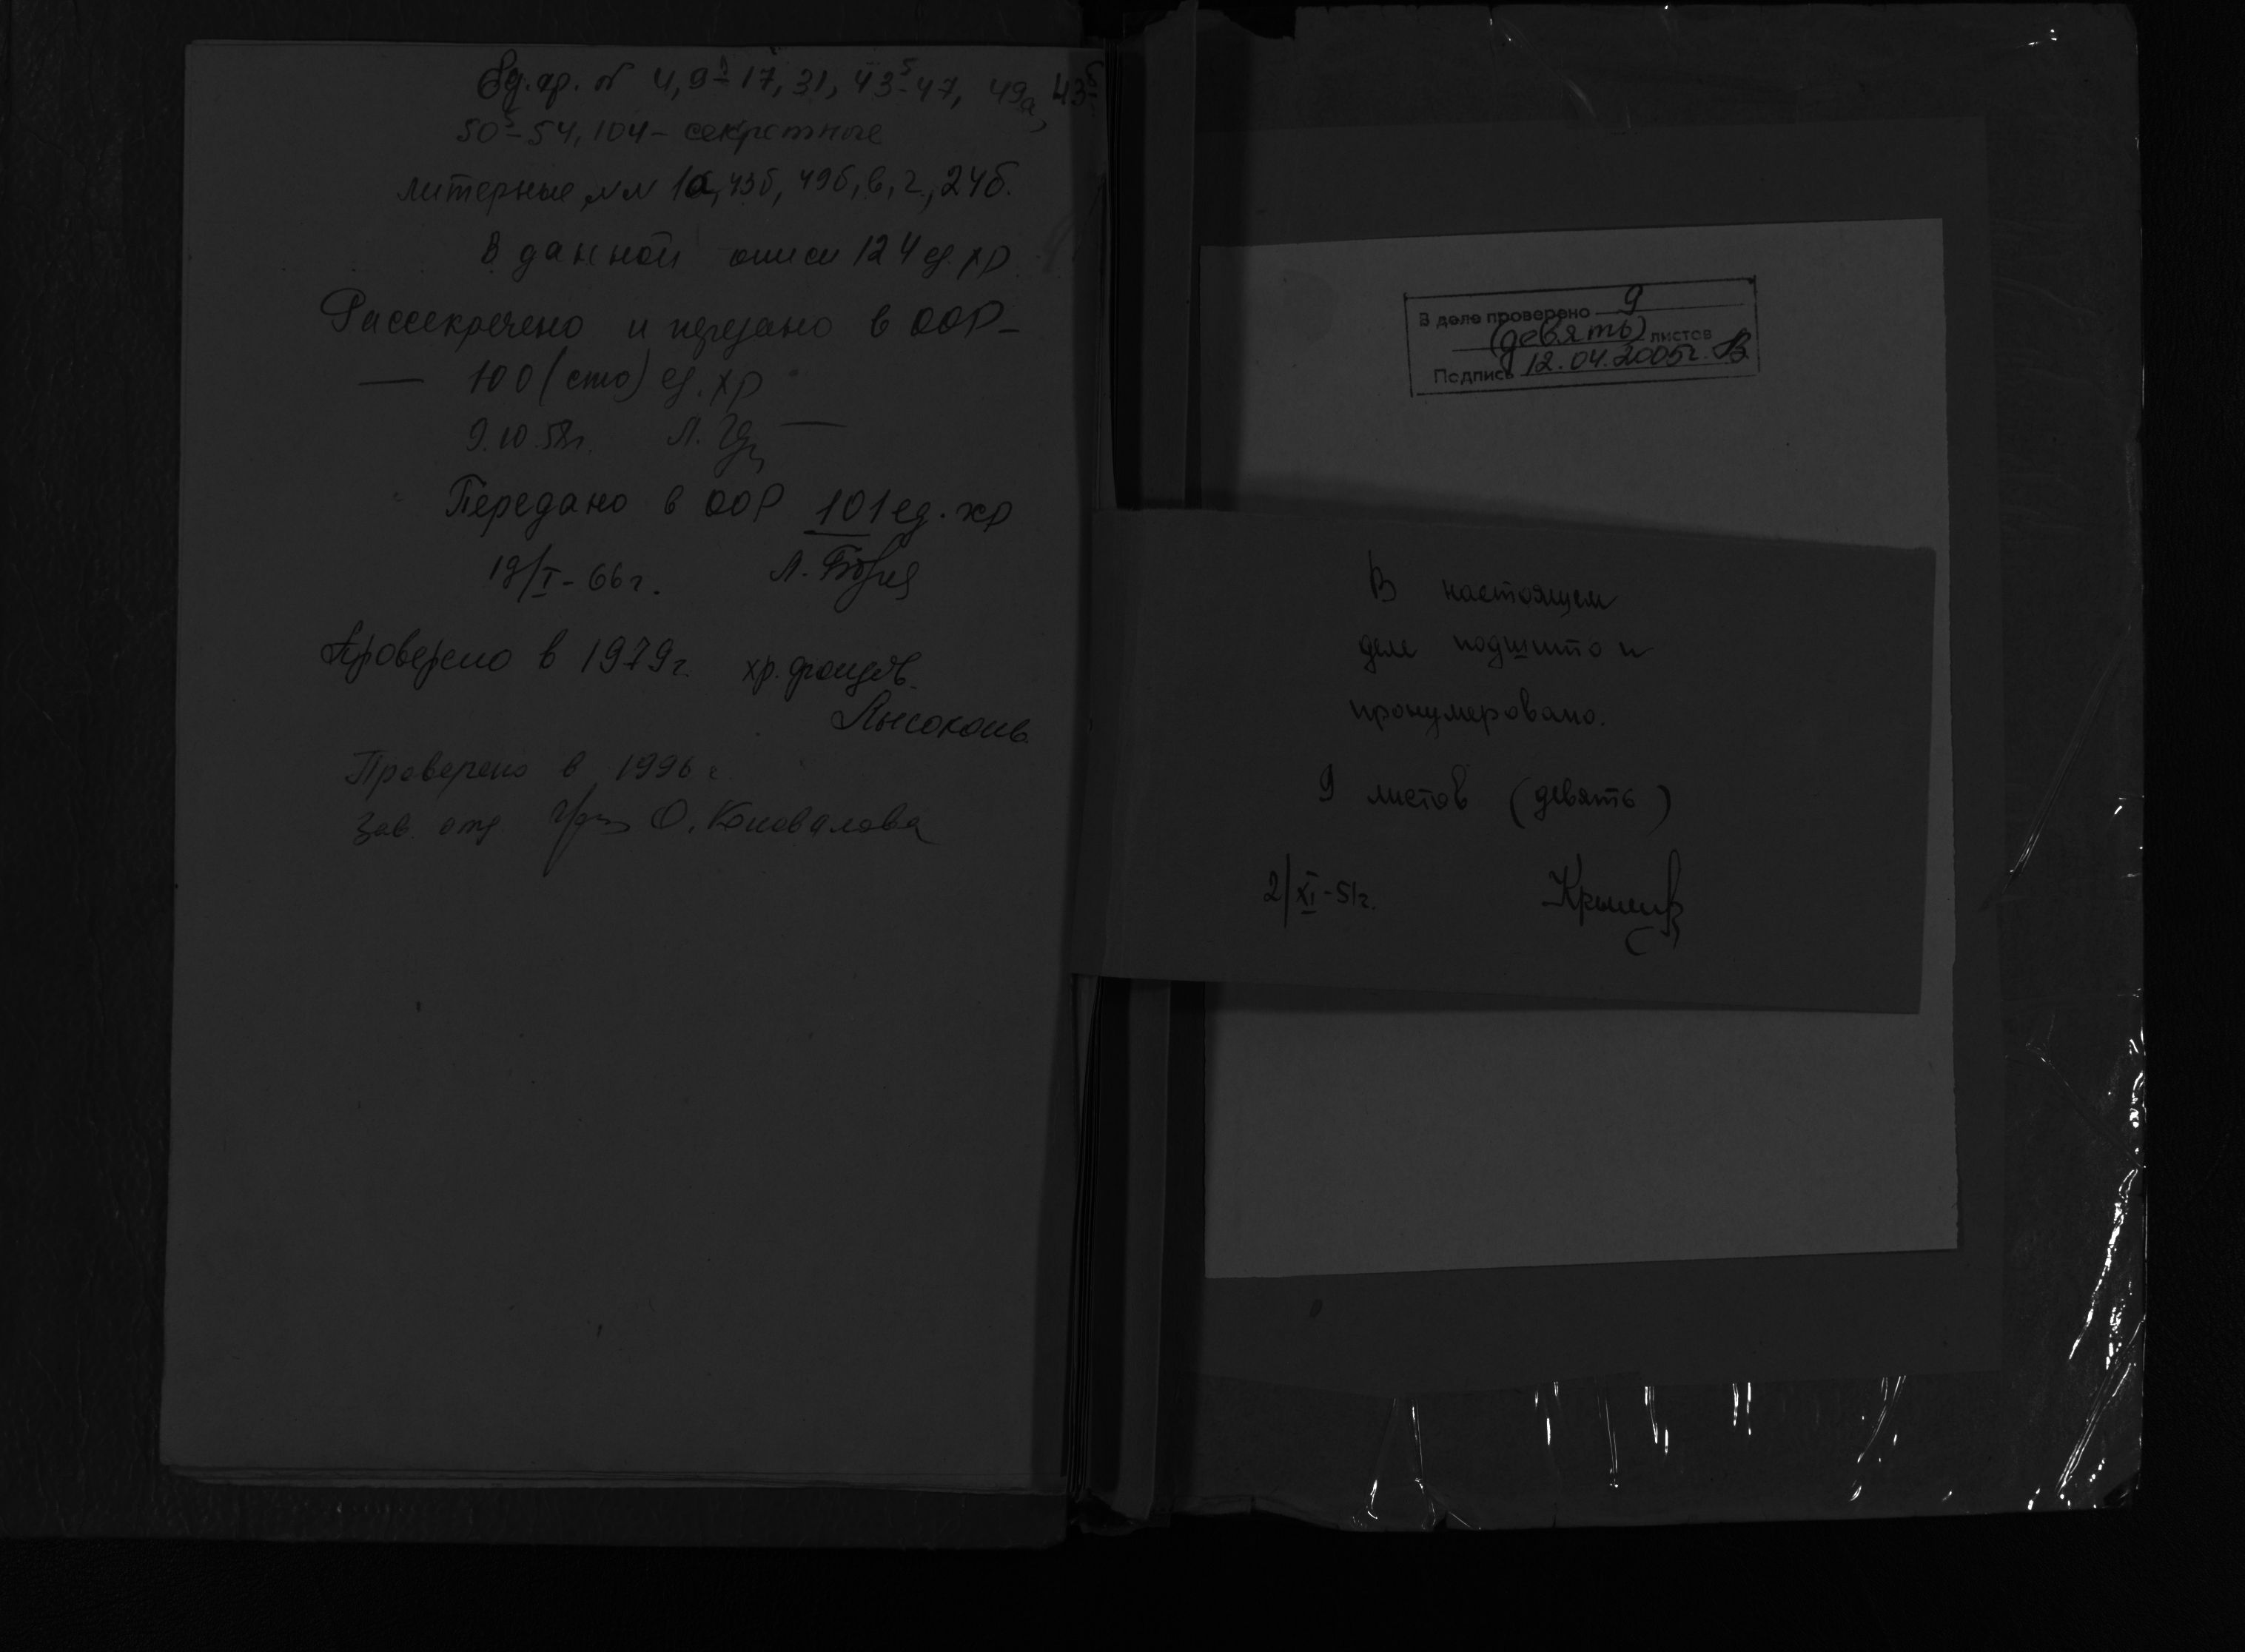 Ед. хр. № 4, 9-17, 31, 43-47, 49а, 43б
50-54, 104 - секретные
литерные №№ 1а, 43б, 49б, в, г, 24б.
В данной описи 124 ед. хр
Рассекречено и передано в ООР-
— 100 (сто) ед. хр
9.10.58г. Л. —
Передано в ООР 101 ед. хр
19/I-66 г. Л.
Проверено в 1979 г. хр. фондов
Проверено в 1996 г
Зав. отд О. Коновалова
В деле проверено 9
(девять) листов
Подпись 12.04.2005г.
В настоящем
деле подшито и
пронумеровано.
9 листов (девять)
2/XI-51г.